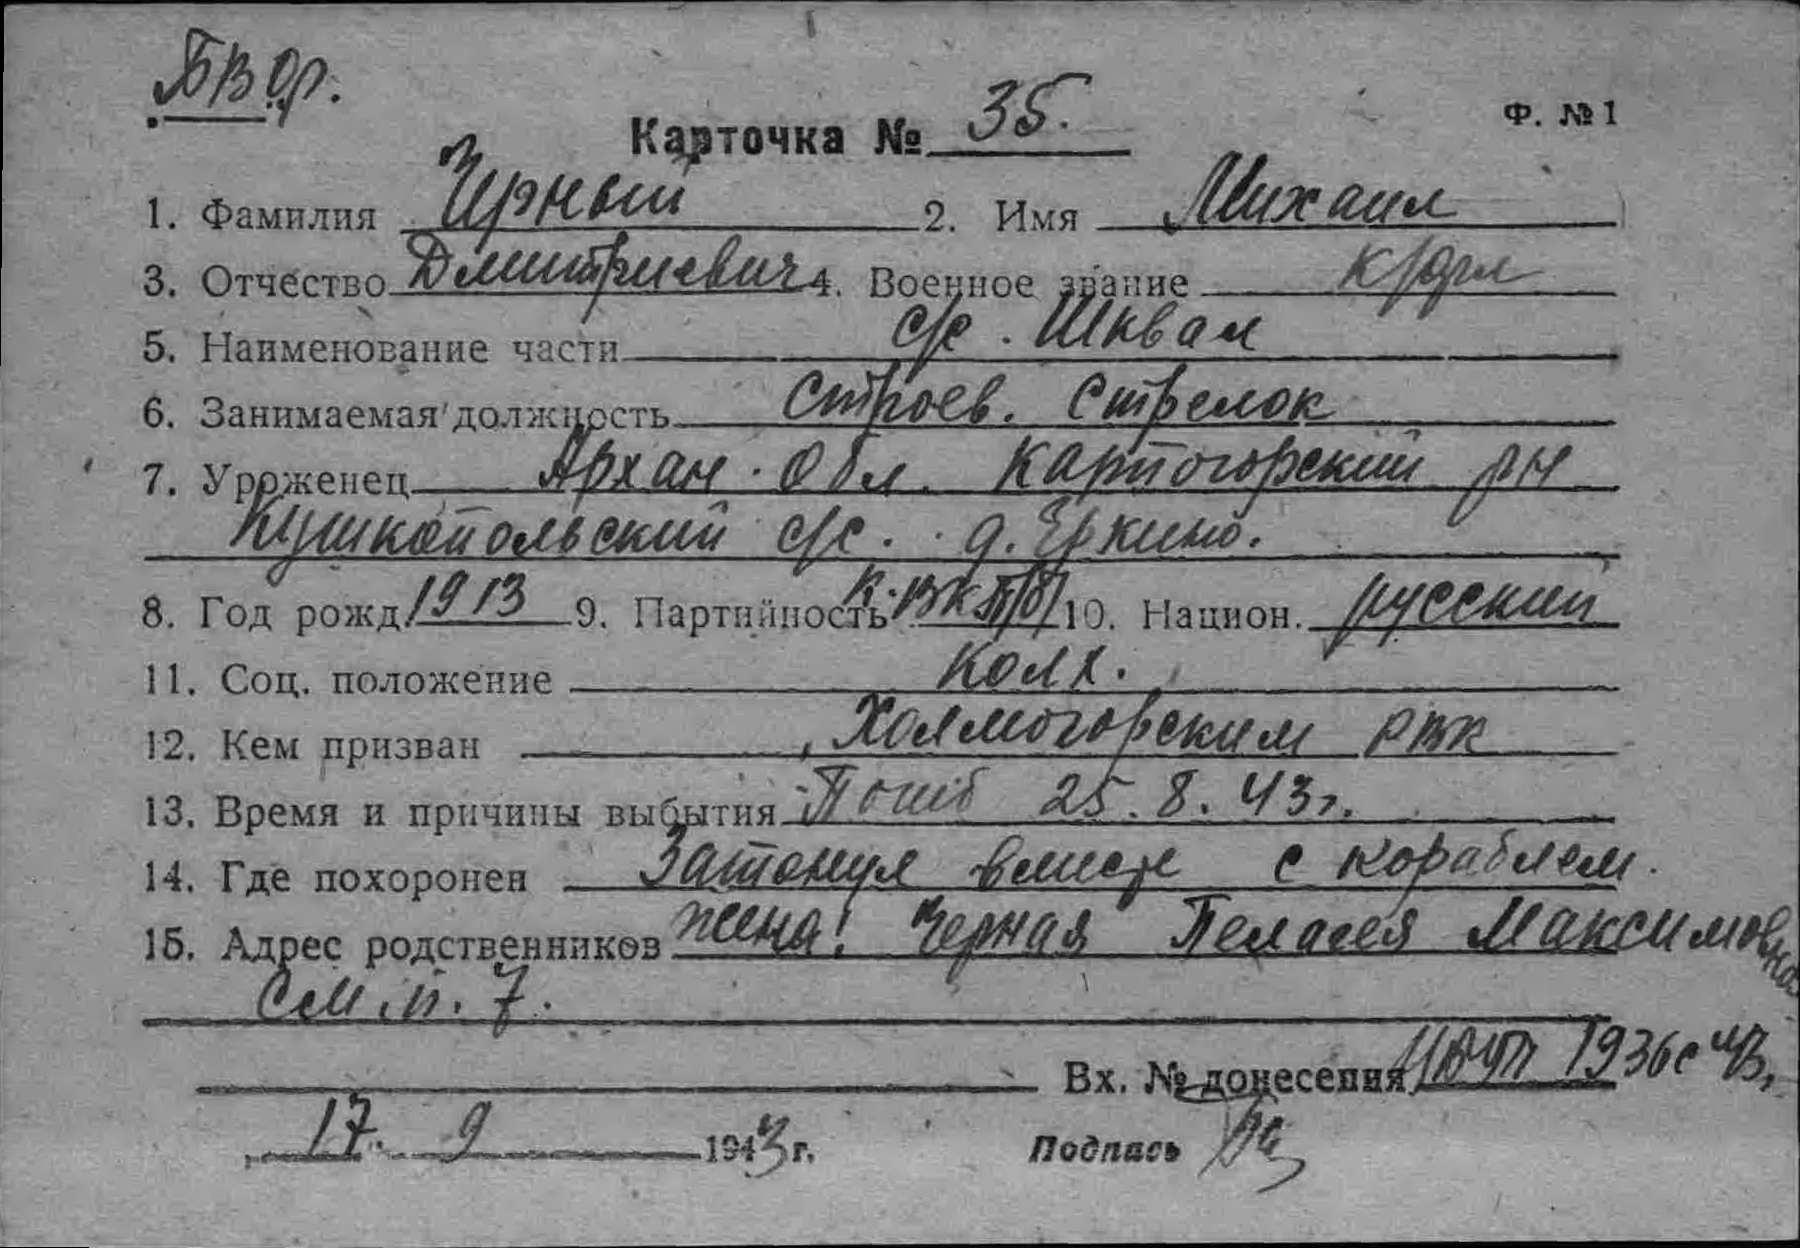 Карточка № 35. Ф. № 1
1. Фамилия Чрный 2. Имя Михаил
3. Отчество Дмитриевич 4. Военное звание к/фл
5. Наименование части с/к. Шквал
6. Занимаемая должность строев. стрелок
7. Уроженец Архан. Обл. Карпогорский рн
Кушкопольский с/с. д. Еркино.
8. Год рожд. 1913 9. Партийность К. ВКП/б/ 10. Национ. русский
11. Соц. положение колх.
12. Кем призван Холмогорским РВК
13. Время и причины выбытия Погиб 25.8.43г.
14. Где похоронен Затонул вместе с кораблем.
15. Адрес родственников жена: Черная Пелагея Максимовна
см. п. 7.
Вх. № донесения 1936с 43г.
17. 9 1943 г. Подпись